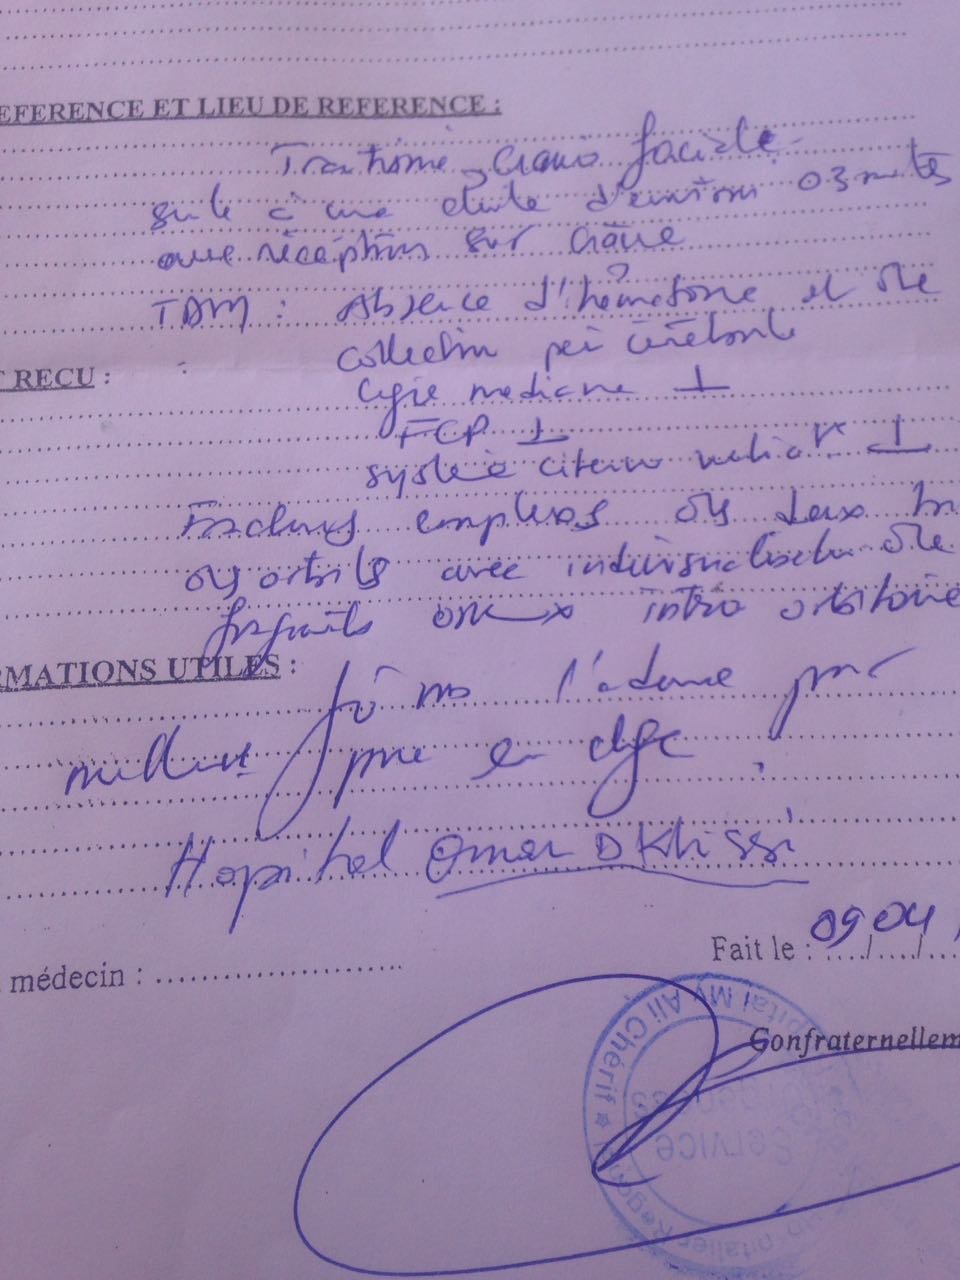 EFERENCE ET LIEU DE REFERENCE :
Traumisme cranio faciale
suite à une chute d'environ 03 mètres
avec réception sur crâne
TDM : Absence d'hématome et de
collection péri cérébrale
T RECU :
ligne médiane ⊥
FCP ⊥
système citerno ⊥
Fractures complexes des deux
os orbites avec individualisation de
fragments osseux intra orbitaire
RMATIONS UTILES :
l'adresse pour
meilleure prise en chge
Hopital Omar DKHissi
médecin :
Fait le : 09 04
Confraternellem
Ali Chérif
Service